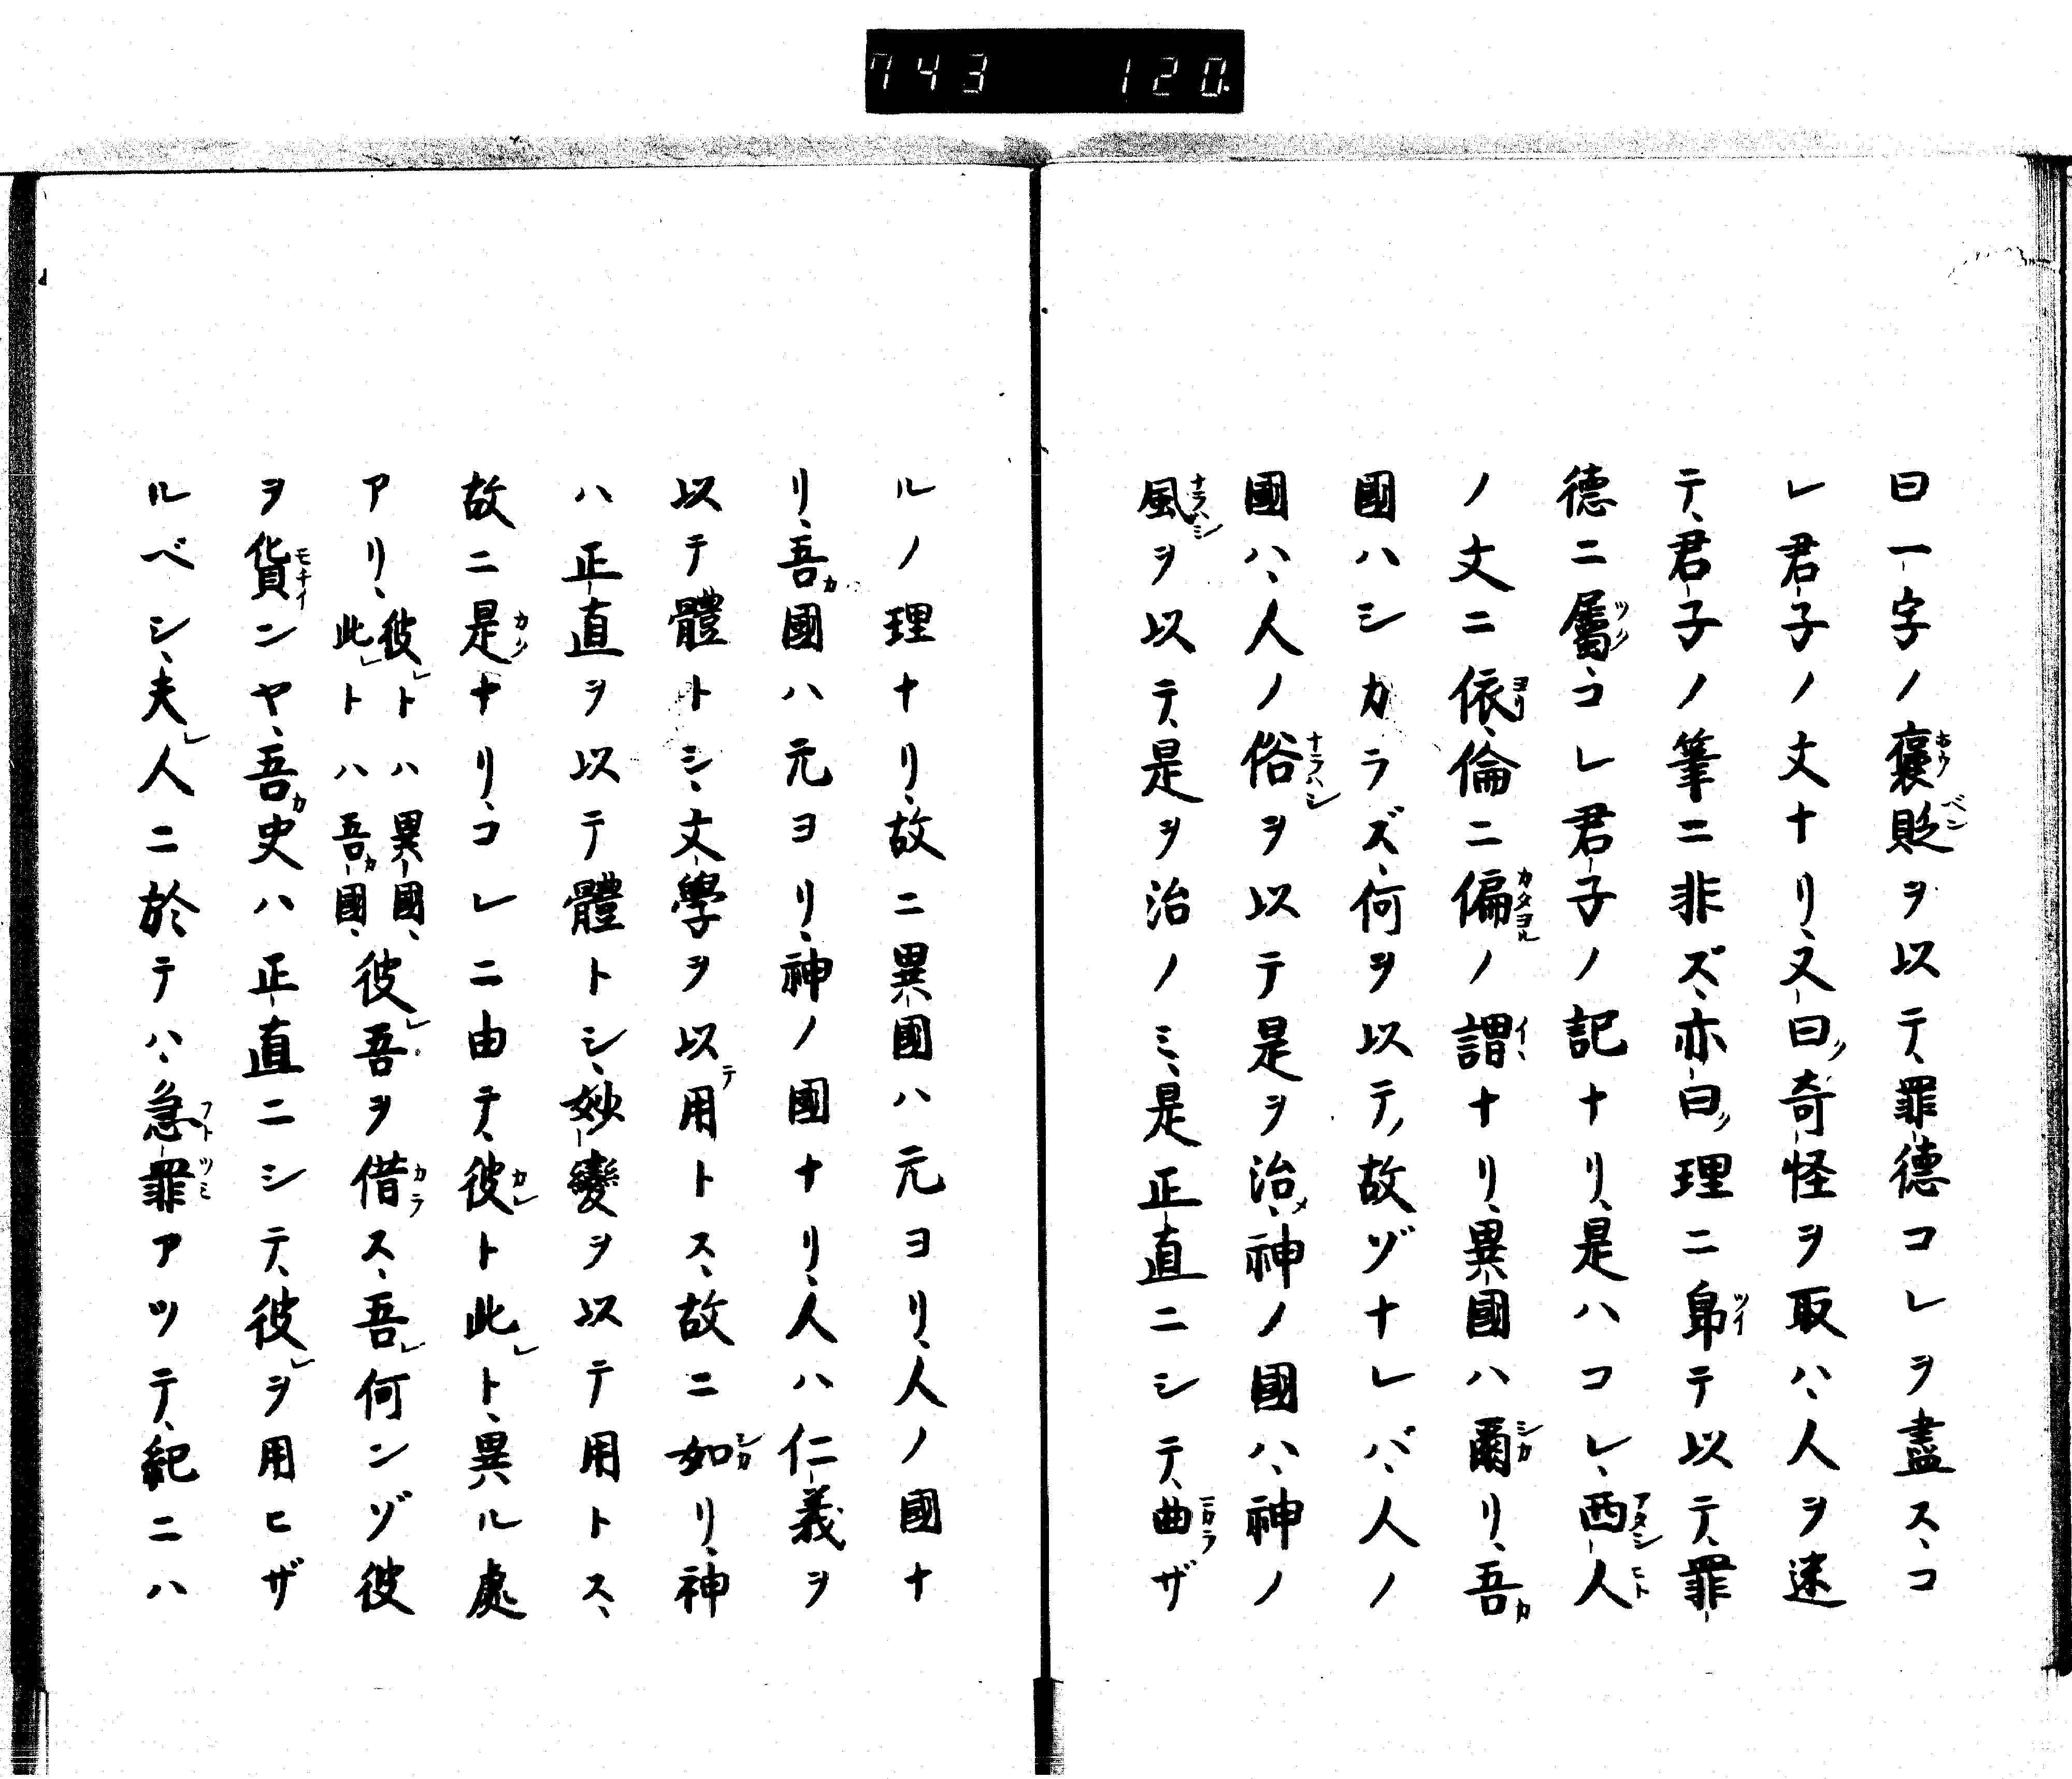 743 120.
曰一字ノ襃貶ヲ以テ、罪德コレヲ盡ス、コ
レ君子ノ文ナリ、又曰、奇怪ヲ取ハ、人ヲ迷
テ、君子ノ筆ニ非ズ、亦曰、理ニ帰テ以テ、罪
德ニ屬、コレ君子ノ記ナリ、是ハコレ、西人
ノ文ニ依、倫ニ偏ノ謂ナリ、異國ハ爾リ、吾
國ハシカラズ、何ヲ以テノ故ゾナレバ、人ノ
國ハ、人ノ俗ヲ以テ是ヲ治、神ノ國ハ、神ノ
風ヲ以テ、是ヲ治ノミ、是正直ニシテ、曲ザ
ルノ理ナリ、故ニ異國ハ元ヨリ、人ノ國ナ
リ、吾國ハ元ヨリ、神ノ國ナリ、人ハ仁義ヲ
以テ體トシ、文學ヲ以テ用トス、故ニ如リ、神
ハ正直ヲ以テ體トシ、妙變ヲ以テ用トス、
故ニ是ナリ、コレニ由テ、彼ト此ト、異ル處
アリ、彼トハ異國、此トハ吾國、彼吾ヲ借ス、吾何ンゾ彼
ヲ貨ンヤ、吾史ハ正直ニシテ、彼ヲ用ヒザ
ルベシ、夫人ニ於テハ、急罪アツテ、紀ニハ